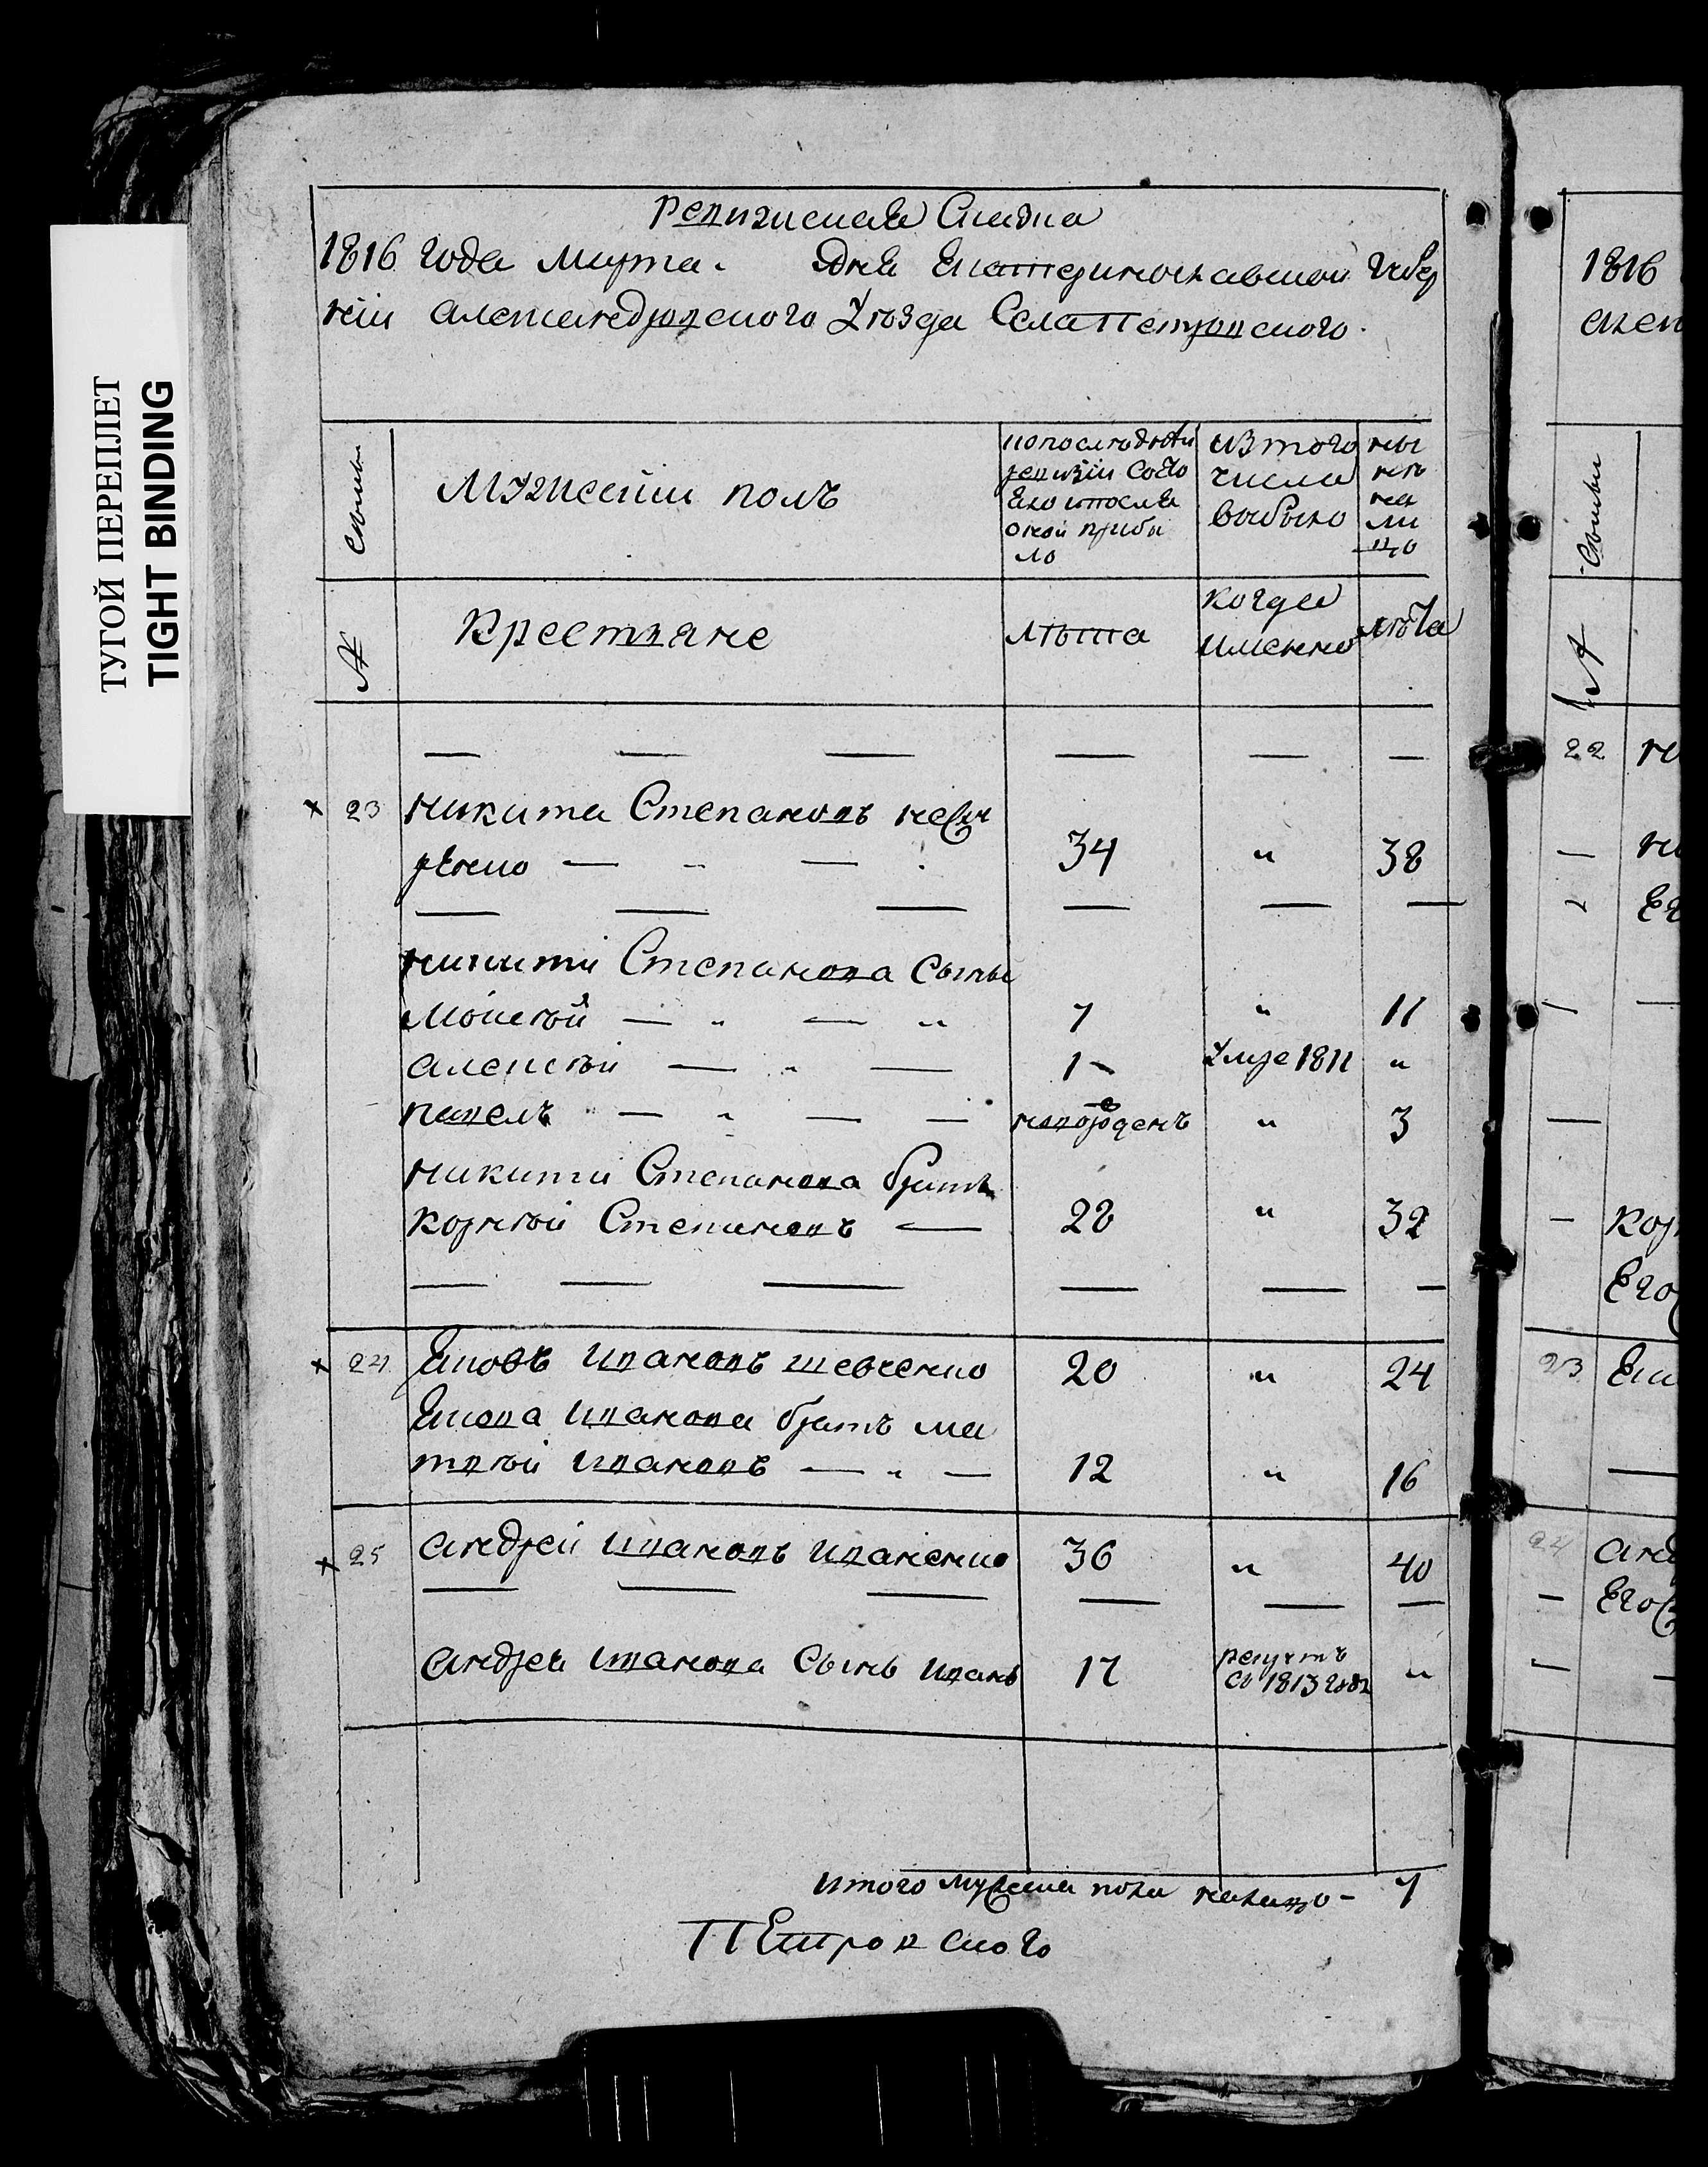 ТУГОЙ ПЕРЕПЛЕТ
TIGHT BINDING
Ревижская Скаска
1816 года марта. дня Екатеринославской Губер
нiи александровского Уѣзда Села Петровского.
Семьи
Мужескiй полъ
попоследней
ревизiи состо
яло ипосле
оной прибы
ло
изтого
числа
выбыло
ны
не
на
ли
цо
№
Крестьяне
лѣта
когда
именно
лѣта
— — — — — —
23 никита Степановъ
34 „ 38
— — — — — —
никиты Степанова сыны
Мойсѣй — „ — „ 7 „ 11
алексѣй — „ — 1 Умре 1811 „
павелъ — „ — — новорожденъ „ 3
никиты Степанова братъ
корнѣй Степановъ — 28 „ 32
— — — — — —
24 Яковъ ивановъ шевченко 20 „ 24
Якова иванова братъ ма
твѣй ивановъ — „ — 12 „ 16
25 андрей ивановъ иваненко 36 „ 40
— — — — — —
андрея иванова сынъ иванъ 17 рекрутъ
съ 1813 года „
итого мужеска пола налицо — 7
ПЕтровского
1816
Семьи
№
22
—
—
—
—
Кор
Его
23 Як
—
24 анд
— Его
— —